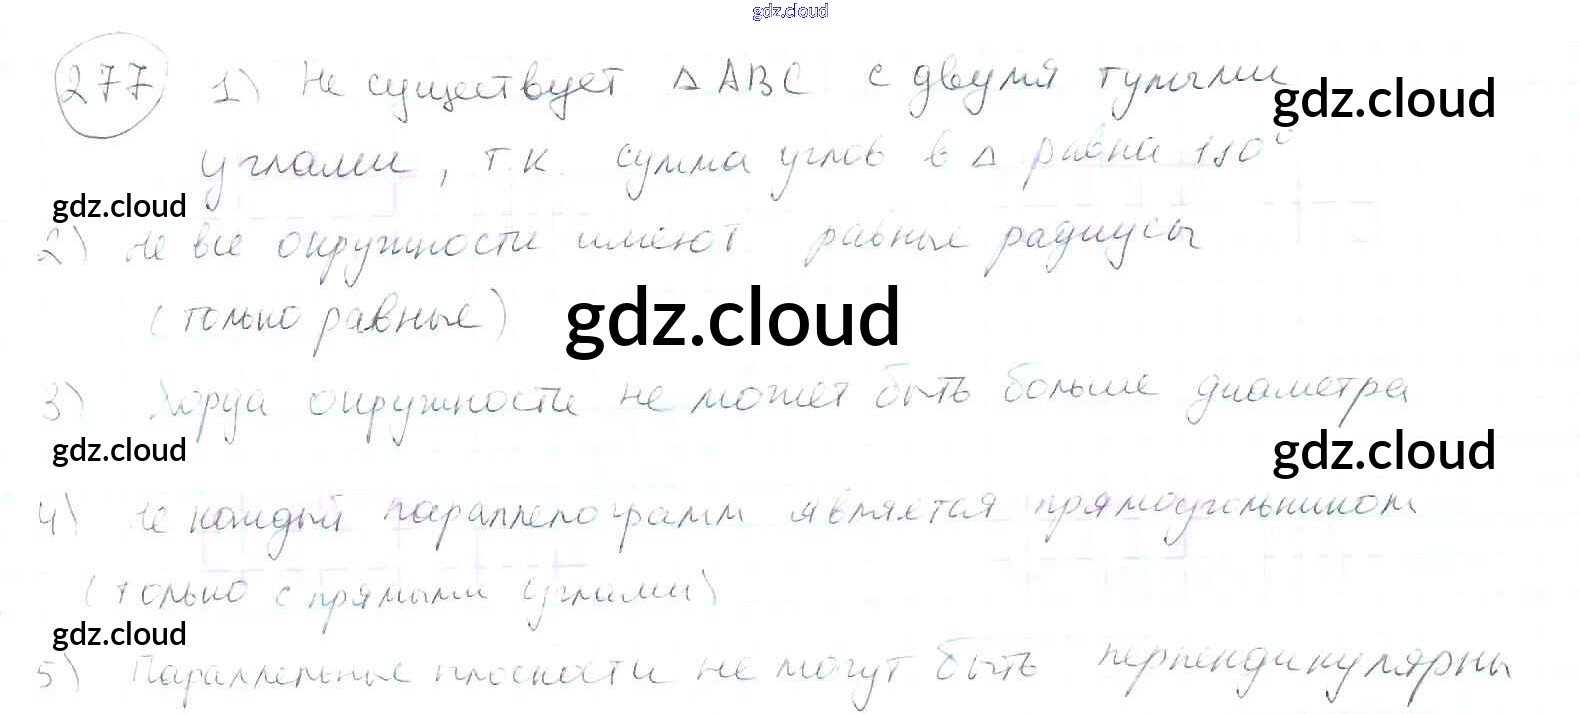 gdz.cloud
277 1) Не существует Δ ABC с двумя тупыми
gdz.cloud
углами, т.к. сумма углов в Δ равна 180°
gdz.cloud
2) Не все окружности имеют равные радиусы
(только равные)
gdz.cloud
3) Хорда окружности не может быть больше диаметра
gdz.cloud
gdz.cloud
4) не каждый параллелограмм является прямоугольником
(только с прямыми углами)
gdz.cloud
5) Параллельные плоскости не могут быть перпендикулярны